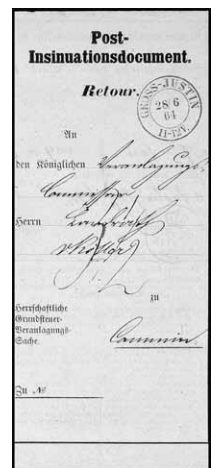 Post-
Insinuationsdocument.
Retour.
GROSS-JUSTIN
28 6
64
11-12V.
An
den Königlichen Veranlagungs-
Commissar
Herrn Landrath
zu
Herrschaftliche
Grundsteuer-
Veranlagungs-
Sache.
Cammin
Zu №